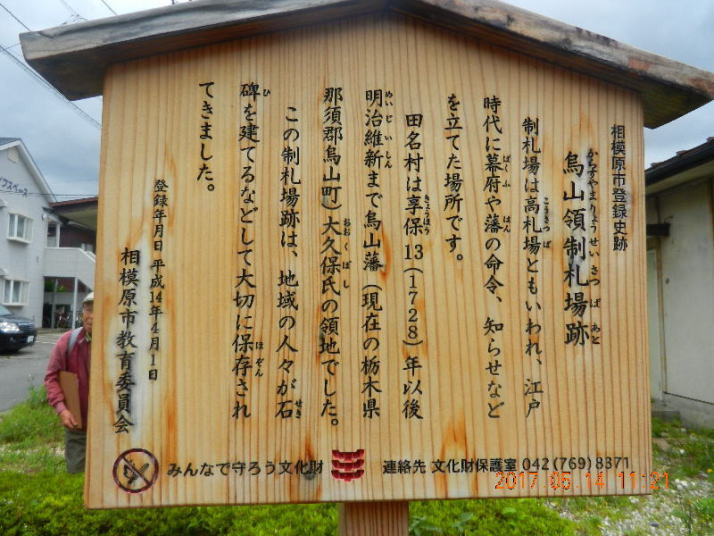 相模原市登録史跡
烏山領制札場跡
からすやまりょうせいさつばあと
制札場は高札場ともいわれ、江戸
こうさつば
時代に幕府や藩の命令、知らせなど
ばくふ はん
を立てた場所です。
田名村は享保13(1728)年以後
きょうほう
明治維新まで烏山藩(現在の栃木県
めいじいしん
那須郡烏山町)大久保氏の領地でした。
おおくぼし
この制札場跡は、地域の人々が石
せき
碑を建てるなどして大切に保存され
ひ ほぞん
てきました。
登録年月日 平成14年4月1日
相模原市教育委員会
みんなで守ろう文化財
連絡先 文化財保護室 042(769)8371
2017.05.14 11:21